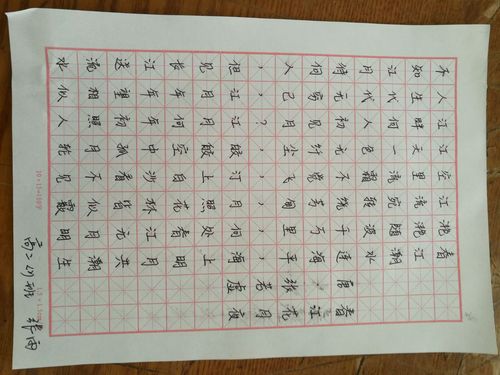 春江花月夜
唐 张若虚
春江潮水连海平，海上明月共潮生
滟滟随波千万里，何处春江无月明
江流宛转绕芳甸，月照花林皆似霰
空里流霜不觉飞，汀上白沙看不见
江天一色无纤尘，皎皎空中孤月轮
江畔何人初见月？江月何年初照人
人生代代无穷已，江月年年望相似
不知江月待何人，但见长江送流水